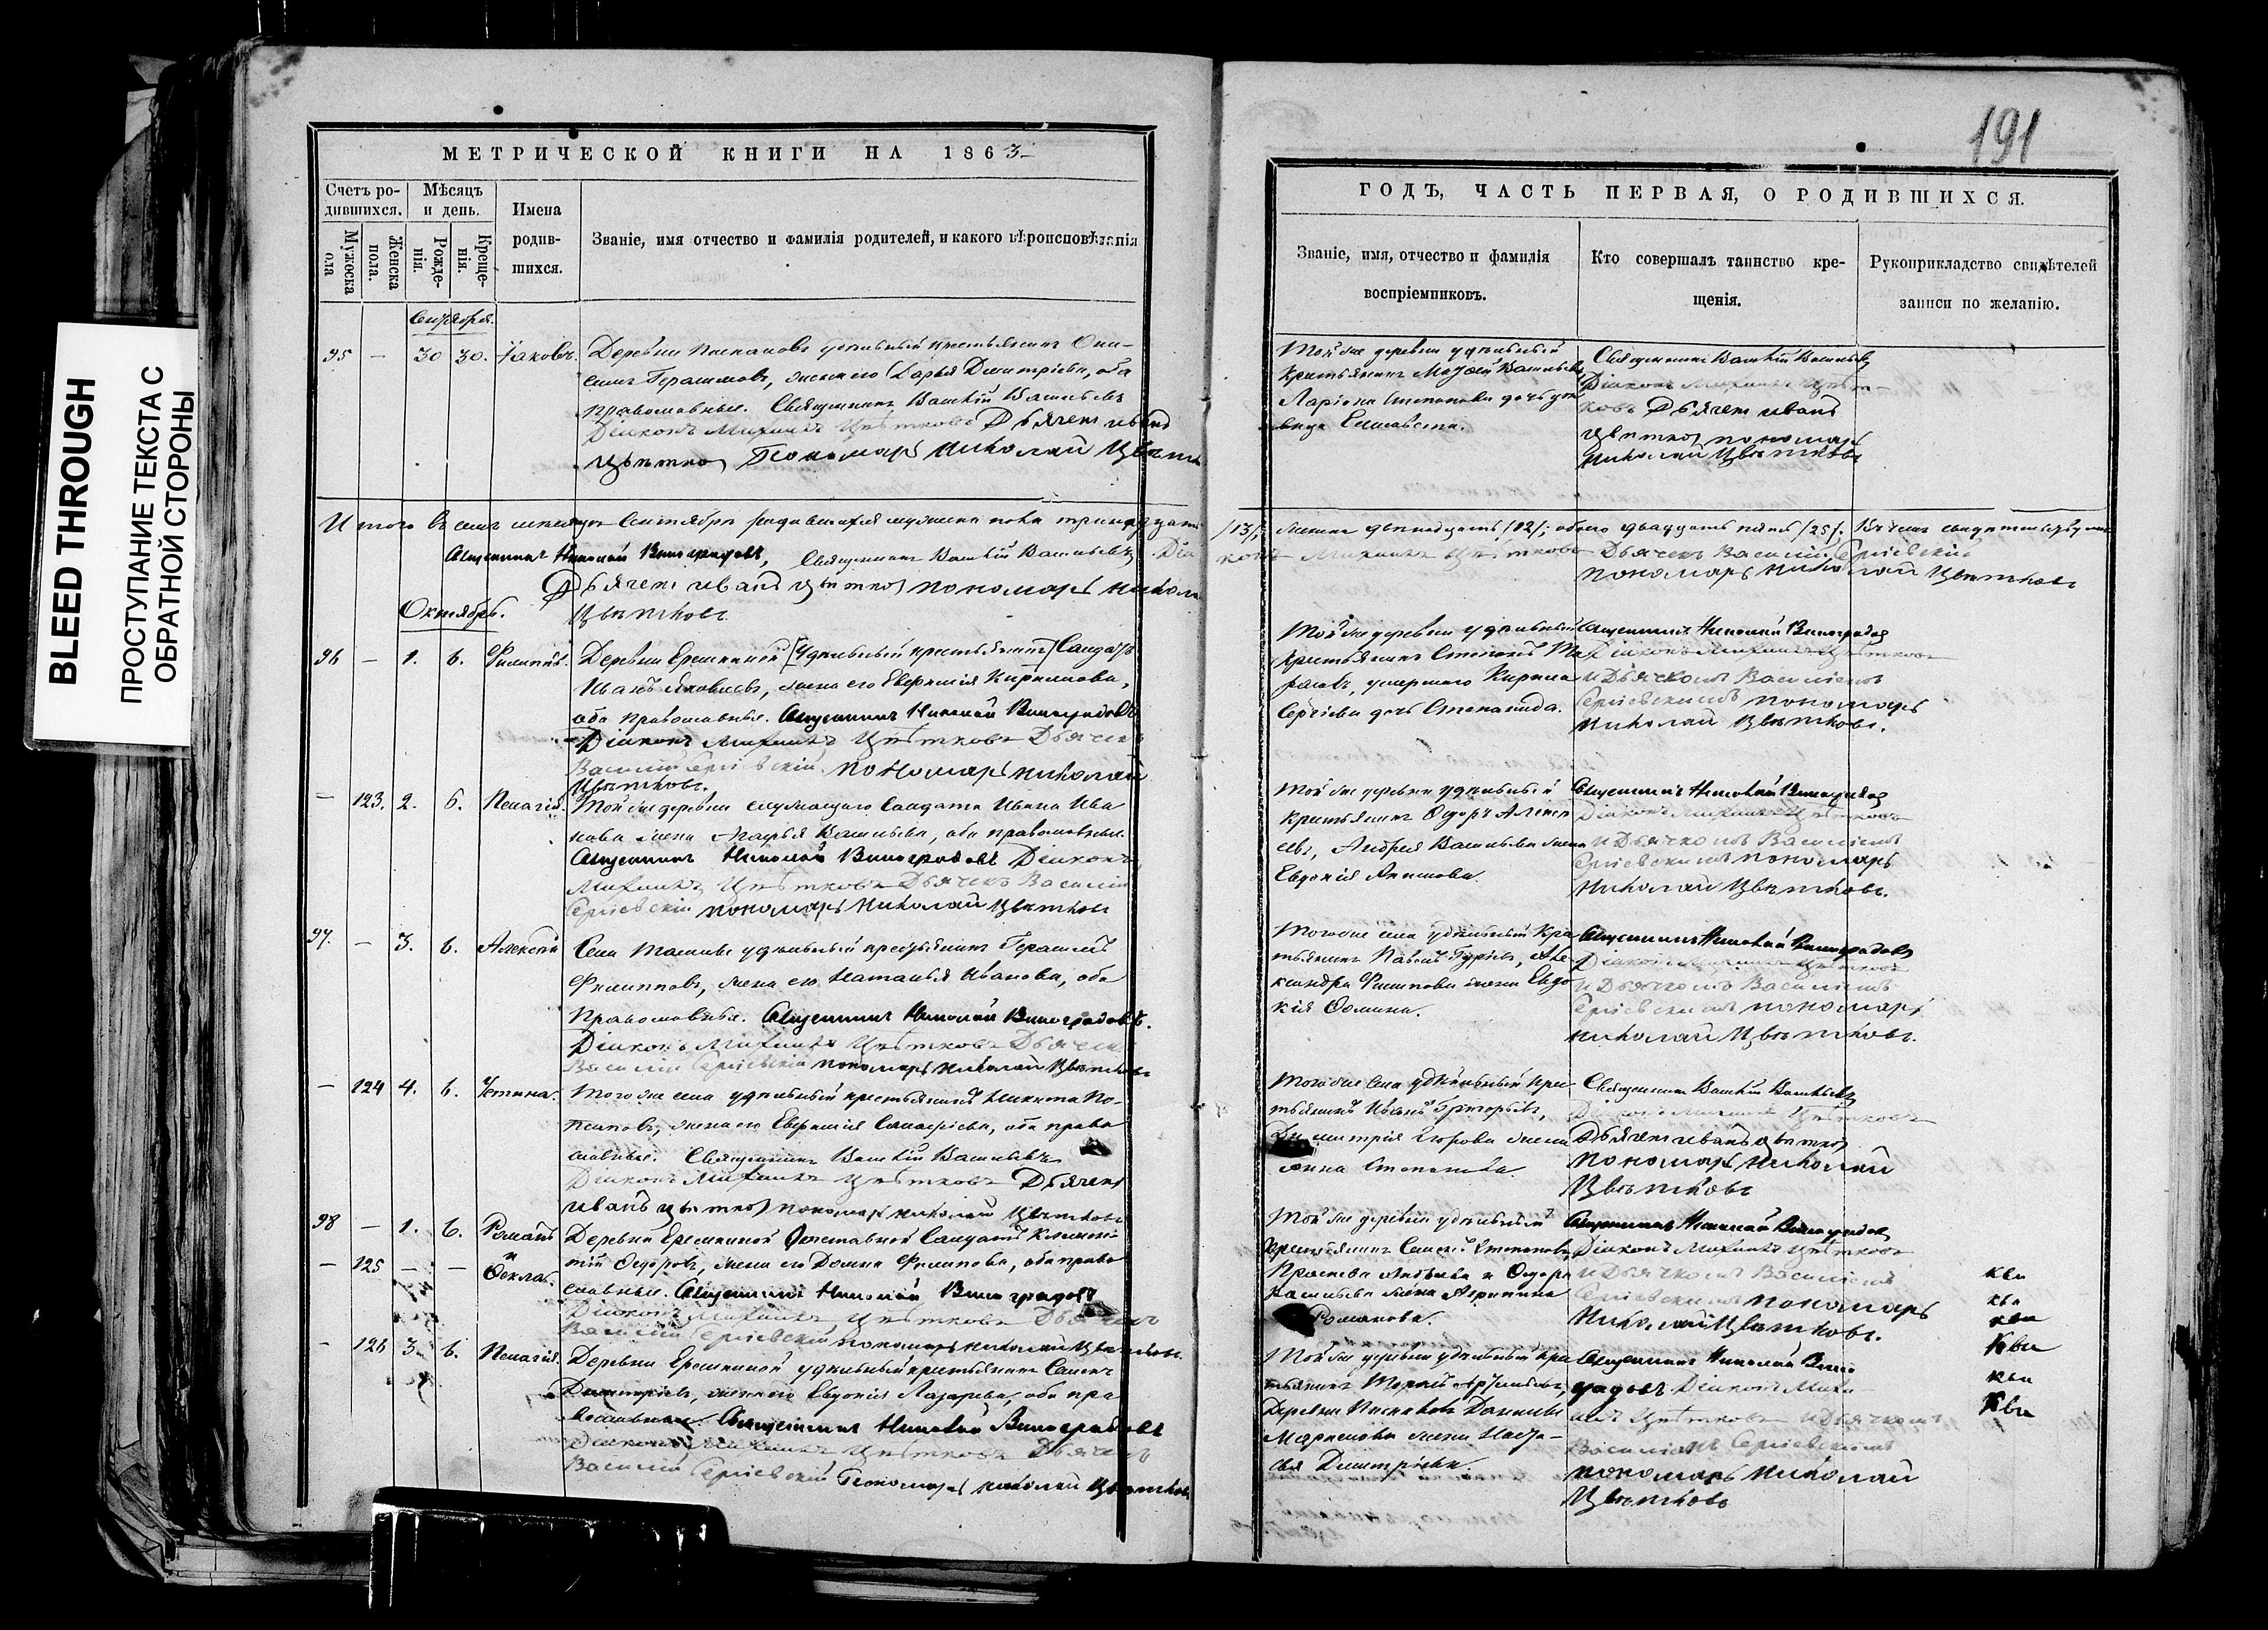 BLEED THROUGH
ПРОСТУПАНИЕ ТЕКСТА С
ОБРАТНОЙ СТОРОНЫ
МЕТРИЧЕСКОЙ КНИГИ НА 1863
Счетъ ро-
дившихся.
Мѣсяцъ
и день.
Мужеска
пола.
Женска
пола.
Рожде-
нія.
Креще-
нія.
Имена
родив-
шихся.
Званіе, имя отчество и фамилія родителей, и какого вѣроисповѣданія
Сентября.
95 — 30 30. Іаковъ.
Деревни удѣльный крестьянинъ Они-
симъ Герасимовъ, жена его Дарья Димитріева, оба
православные. Священникъ Василій Васильевъ
Діаконъ Михаилъ Цвѣтковъ Дьячекъ иванъ
цвѣтков Пономарь николай Цвѣтк
Итого въ семъ мѣсяцѣ Сентябрѣ родившихся мужеска пола тринадцать
Священникъ Николай Виноградовъ, Священникъ Василій Васильевъ Діа
Дьячекъ иванъ цвѣтков пономарь никола
Цвѣтковъ
Октябрь.
96 — 1. 6. Филиппъ.
Деревни Еремкиной [Удѣльный крестьянинъ] Солдатъ
Иванъ Яковлевъ, жена его Евфимія Кириллова,
оба православные. Священникъ Николай Виноградовъ
Діаконъ Михаилъ Цвѣтковъ Дьячекъ
Василій Сергіевскій пономарь николай
Цвѣтковъ.
— 123. 2. 6. Пелагія.
Той же деревни служащаго Солдата Ивана Ива
нова жена Марья Васильева, оба православные.
Священникъ Николай Виноградовъ Діаконъ
Михаилъ Цвѣтковъ Дьячекъ Василій
Сергіевскій пономарь николай цвѣтковъ
97. — 3. 6. Алексѣй
Села удѣльный крестьянинъ Герасимъ
Филипповъ, жена его Наталья Иванова, оба
Православные. Священникъ Николай Виноградовъ.
Діаконъ Михаилъ Цвѣтковъ Дьячекъ
Василій Сергіевскій пономарь николай цвѣтковъ
— 124 4. 6. Устина.
Того же села удѣльный крестьянинъ Никита По-
таповъ, жена его Евфимія оба право
славные. Священникъ Василій Васильевъ
Діаконъ Михаилъ Цвѣтковъ Дьячекъ
иванъ цвѣтков пономарь николай цвѣтковъ
98 — 1. 6. Романъ
— 125 — — и Ѳекла.
Деревни Еремкиной Отставной Солдатъ Клемен-
тій Ѳедоровъ, жена его Домна Филипова, оба право
славные. Священникъ Николай Виноградовъ
Діаконъ Михаилъ Цвѣтковъ Дьячекъ
Василій Сергіевскій пономарь николай Цвѣтковъ.
— 126 3. 6. Пелагія.
Деревни Еремкиной удѣльный крестьянинъ
Димитріевъ, жена его Евдокія Лазарева, оба пра
вославные. Священникъ Николай Виноградовъ
Діаконъ Михаилъ Цвѣтковъ Дьячекъ
Василій Сергіевскій Пономарь николай Цвѣтковъ
191
ГОДЪ, ЧАСТЬ ПЕРВАЯ, О РОДИВШИХСЯ.
Званіе, имя, отчество и фамилія
воспріемниковъ.
Кто совершалъ таинство кре-
щенія.
Рукоприкладство свидѣтелей
записи по желанію.
Той же деревни удѣльный
крестьянинъ Васильевъ
Ларіона Степанова дочь
вица Елисавета.
Священникъ Василій Васильевъ
Діаконъ Михаилъ Цвѣт-
ковъ Дьячекъ иванъ
цвѣтков пономарь
николай Цвѣтковъ
/13/; женска двѣнадцать /12/; обоего двадцать пять /25/.
конъ Михаилъ Цвѣтковъ Дьячекъ Василій Сергіевскій
пономарь николай Цвѣтковъ
Той же деревни удѣльный
крестьянинъ Степанъ Та
расовъ, умершаго Кирила
Сергѣева дочь Степанида.
Священникъ Николай Виноградов
Діаконъ Михаилъ Цвѣтковъ
и Дьячкомъ Василіемъ
Сергіевскимъ пономарь
николай Цвѣтковъ.
Той же деревни удѣльный
крестьянинъ Ѳедоръ Алексѣ
евъ, Андрея Васильева жена
Евдокія Акимова.
Священникъ Николай Виноградов
Діаконъ Михаилъ Цвѣтковъ
и Дьячкомъ Василіемъ
Сергіевскимъ пономарь
николай Цвѣтковъ.
Того же села удѣльный Кре
стьянинъ Павелъ Гурьевъ, Але
ксандра Филипова жена Евдо
кія Ѳомина.
Священникъ Николай Виноградовъ
Діаконъ Михаилъ Цвѣтковъ
и Дьячкомъ Василіемъ
Сергіевскимъ пономарь
николай Цвѣтковъ.
Того же села удѣльный кре
стьянинъ Иванъ Григорьевъ,
Димитрія Егорова жена
Анна Степанова.
Священникъ Василій Васильевъ
Діаконъ Михаилъ Цвѣтковъ
Дьячекъ иванъ цвѣтков
пономарь николай
Цвѣтковъ
Той же деревни удѣльный
крестьянинъ Степановъ,
и Ѳедора
Васильева жена Агрипина
Романова.
Священникъ Николай Виноградов
Діаконъ Михаилъ Цвѣтковъ
и Дьячкомъ Василіемъ
Сергіевскимъ пономарь
николай Цвѣтковъ.
Той же деревни удѣльный кре
стьянинъ
Деревни Данилы
жена Наста-
сья Димитріева.
Священникъ Николай Вино
градовъ Діаконъ Миха
илъ Цвѣтковъ и Дьячкомъ
Василіемъ Сергіевскимъ
пономарь николай
Цвѣтковъ